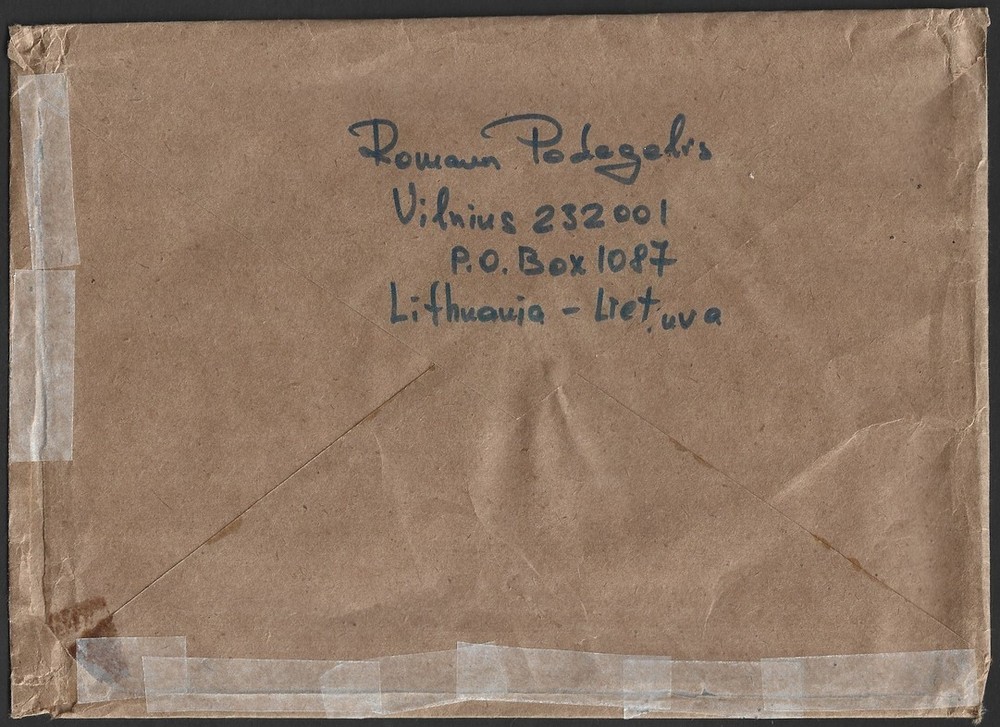 Roman Podagelis
Vilnius 232001
P.O. Box 1087
Lithuania - Lietuva